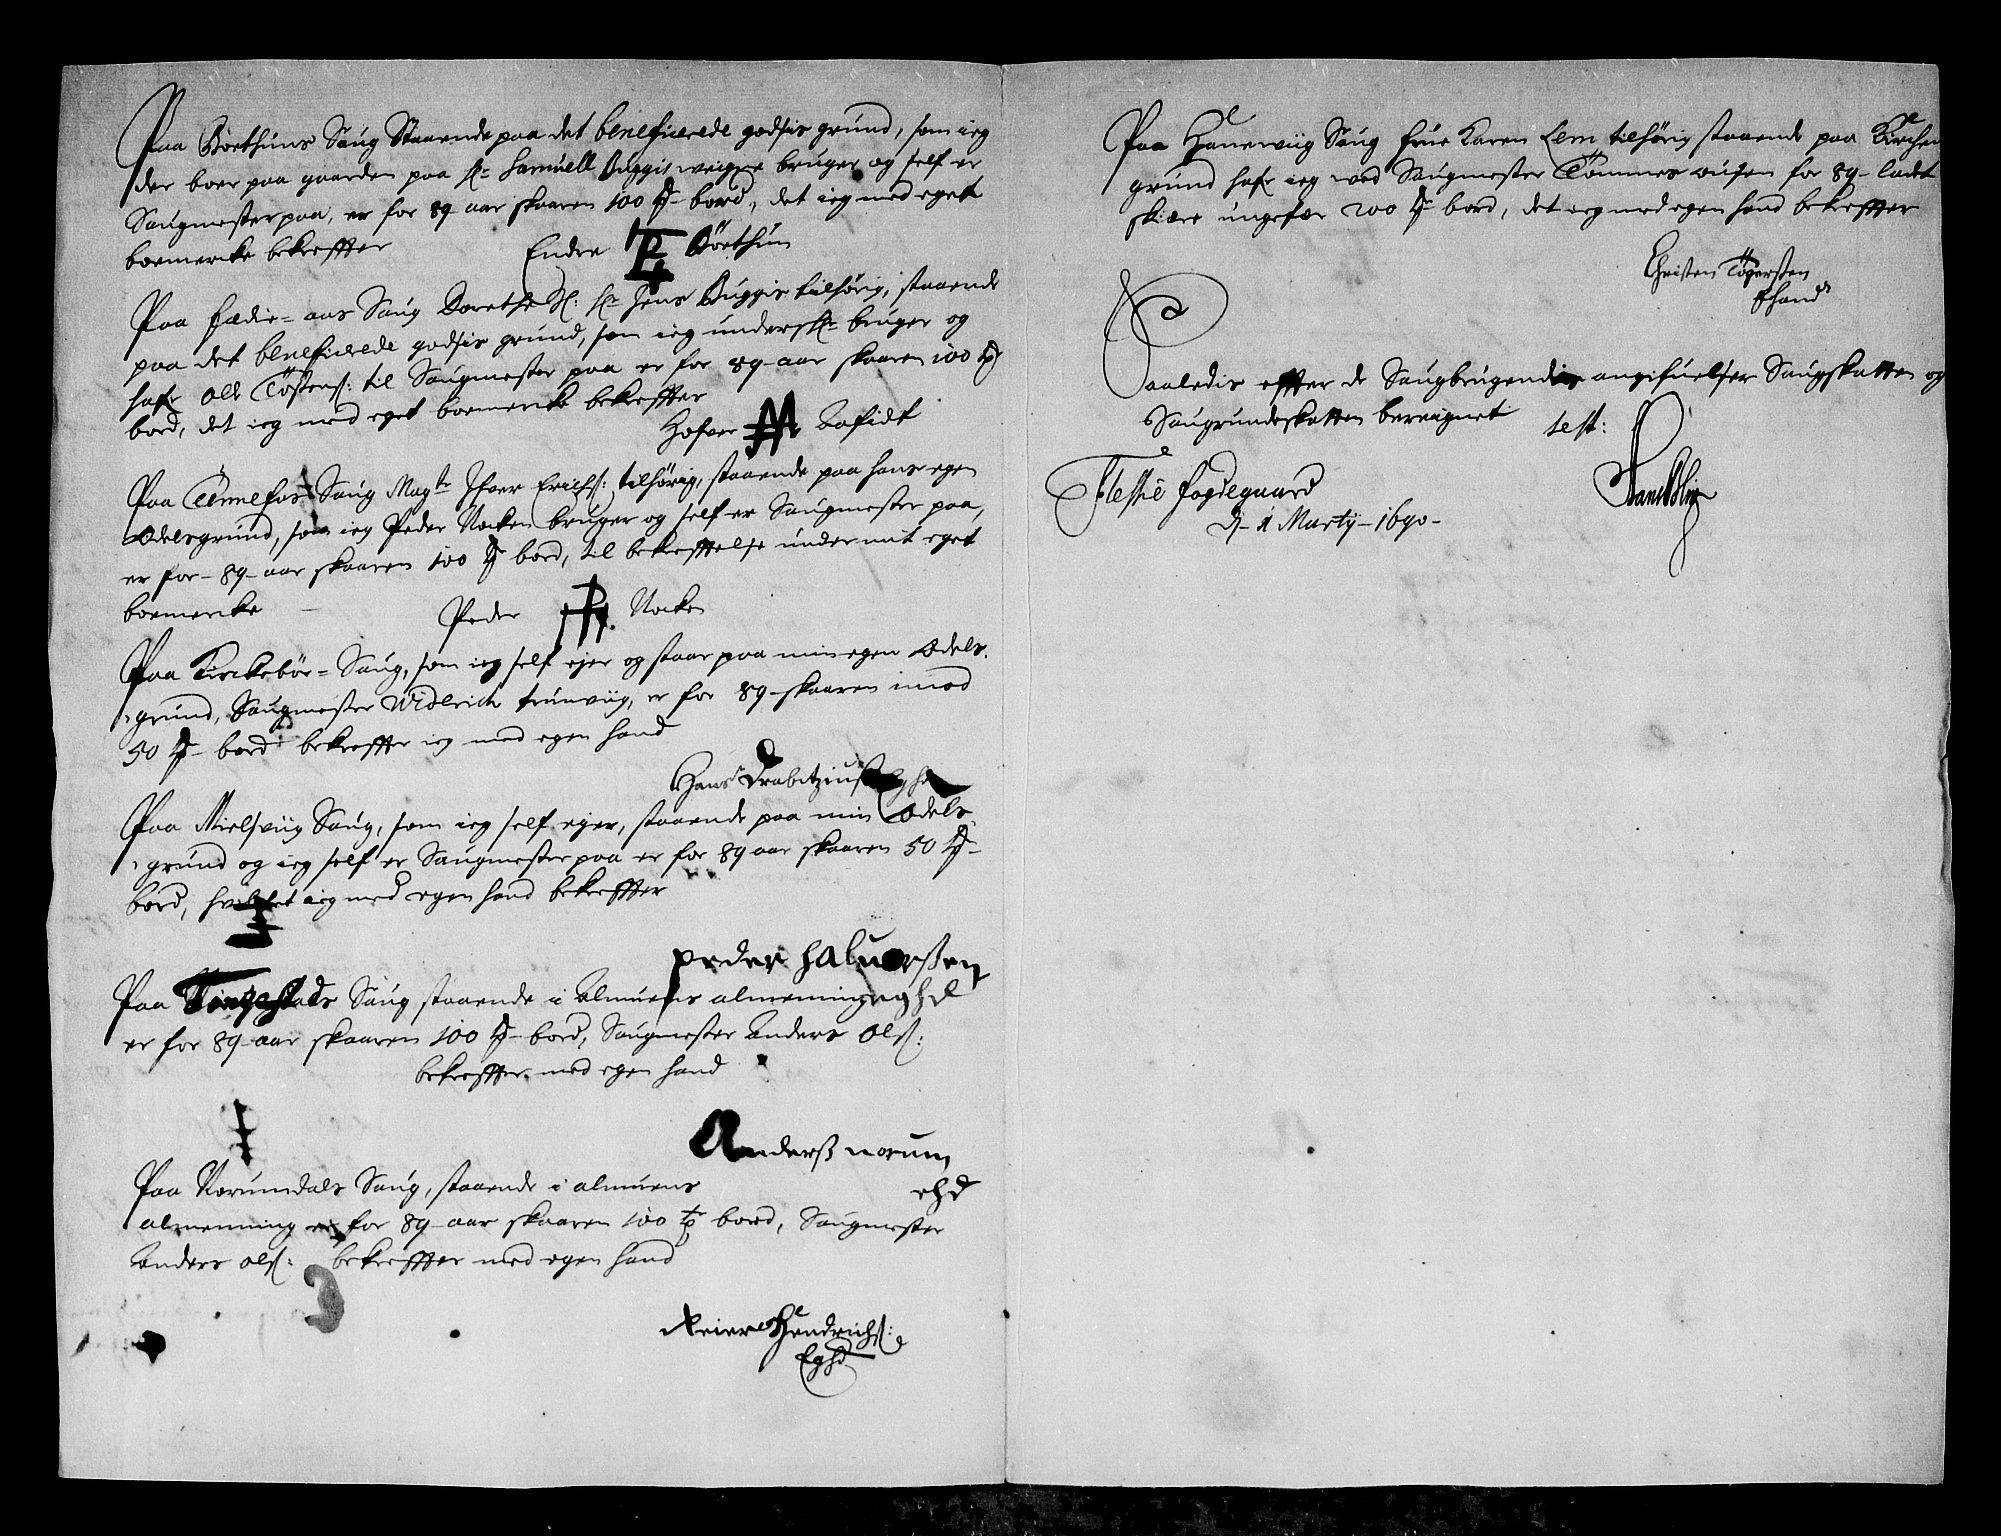 Paa Börthuns Saug Staaende paa det beneficerede godsis grund, som ieg
der boer paa gaarden paa Hr Samuell Buggis weigne bruger og self er
Saugmester paa, er for 89 aar skaaren 100 bord, det ieg med eget
boemercke bekreffter
Endre Börthun
Paa aas Saug Dorethe Sl: Hr Jens Buggis tilhörig, staaende
paa det beneficerede godsis grund, som ieg undersk bruger og
hafr Olle Töstens: til Saugmester paa er for 89 aar skaaren 100
bord, det ieg med eget boemercke bekreffter
Hofver Lofidt
Paa Tennefos Saug Magtr Ifver Erichs: tilhörig, staaende paa hans egen
Odelsgrund, som ieg Peder Nocken bruger og self er Saugmester paa,
er for 89 aar skaaren 100 bord, til bekreffttelse under mit eget
boemercke
Peder Nocken
Paa Kirckebör Saug, som ieg self ejer og staar paa min egen Odels
grund, Saugmester Widerich trunviig, er for 89 skaaren imod
50 bord bekreffter ieg med egen hand
Hans Drabitzius Eghd
Paa Nielsviig Saug, som ieg self ejer, staaende paa min Odels
grund og ieg self er Saugmester paa er for 89 aar skaaren 50
bord, hvilchet ieg med egen hand bekreffter
peder haluorßen
eghd
Paa Saug staaende i Almuens almenning
er for 89 aar skaaren 100 bord, Saugmester Anders Ols:
bekreffter med egen hand
Anderß norum
ehd
Paa Norumdals Saug, staaende i almuens
almenning er for 89 aar skaaren 100 bord, Saugmester
Anders Ols: bekreffter med egen hand
Reier Hendrichs:
Eghd
Paa Haneviig Saug frue Karen tilhörig staaende paa Kirchens
grund hafr ieg wed Saugmester Tommes for 89 ladet
skiære ungefær 200 bord, det ieg med egen hand bekreffter
Christen Tögersten
Ehand
Saaledis effter de Saugbrugendis angifuelser Saugskatten og
Saugrundeskatten bereignet test:
Flessie fogdegaard
d. 1 Martij 1690